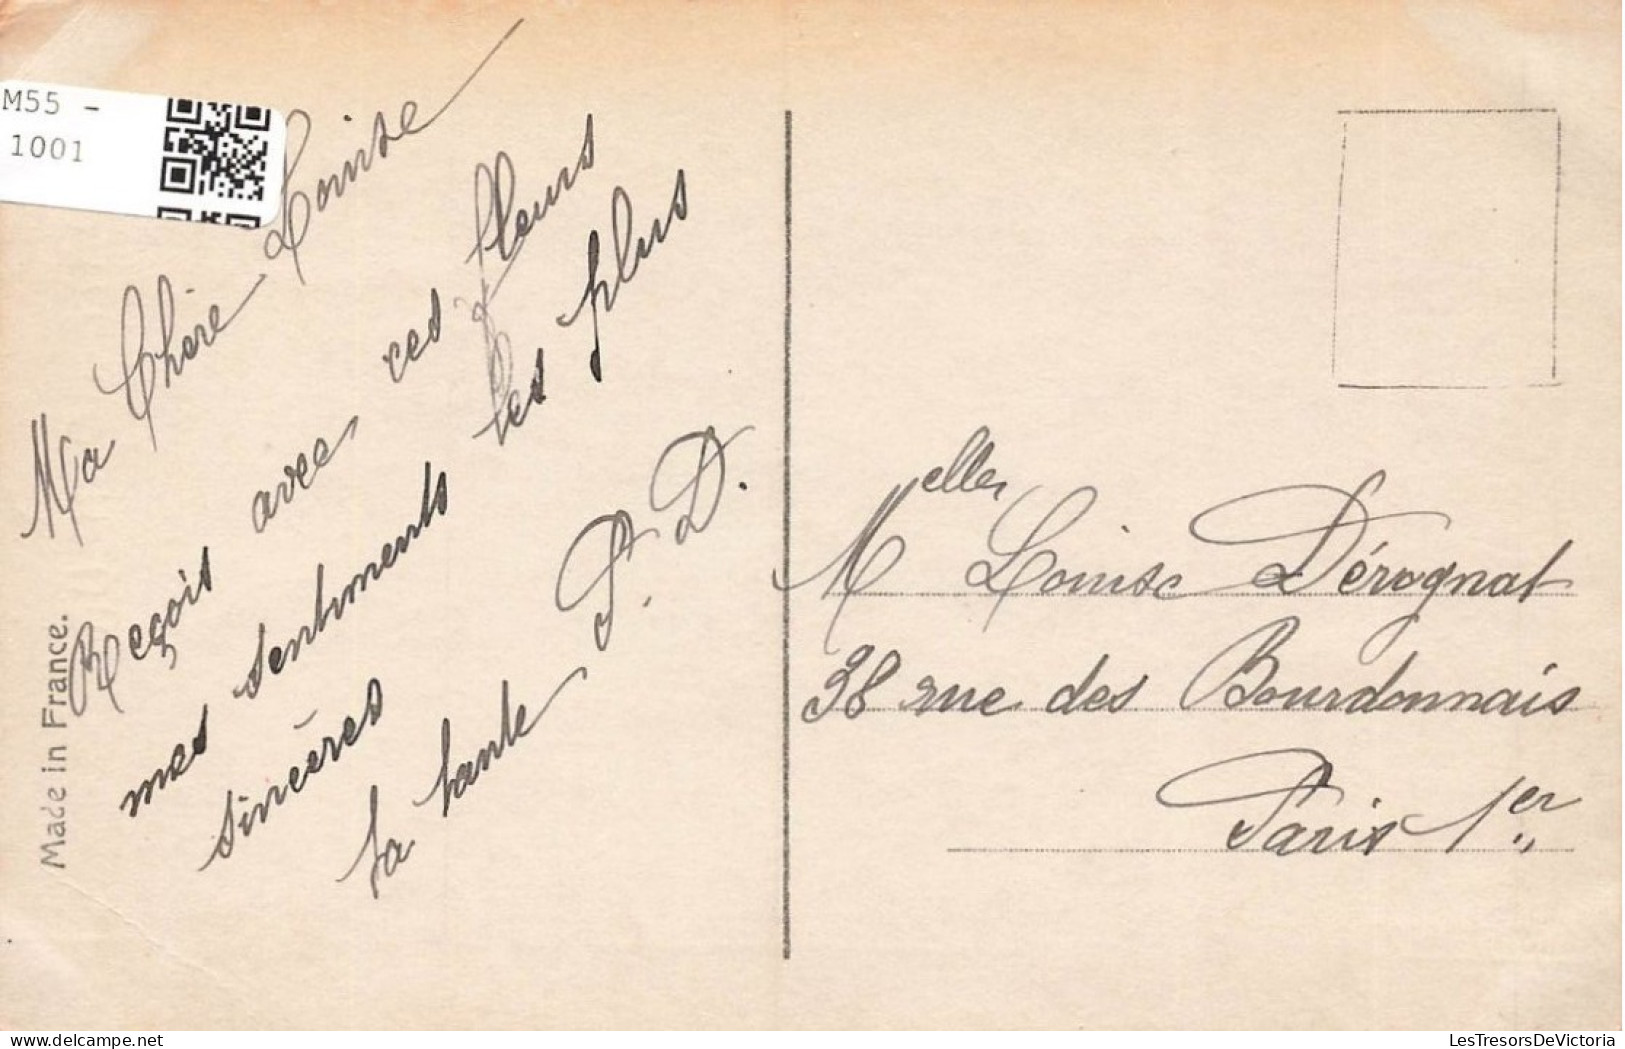 M55 -
1001
Ma Chère Louise
Reçois avec ces fleurs
mes sentiments les plus
sincères
Ta tante P. D.
Made in France.
Melle Louise Dérognat
38 rue des Bourdonnais
Paris 1er
delcampe.net
LesTresorsDeVictoria